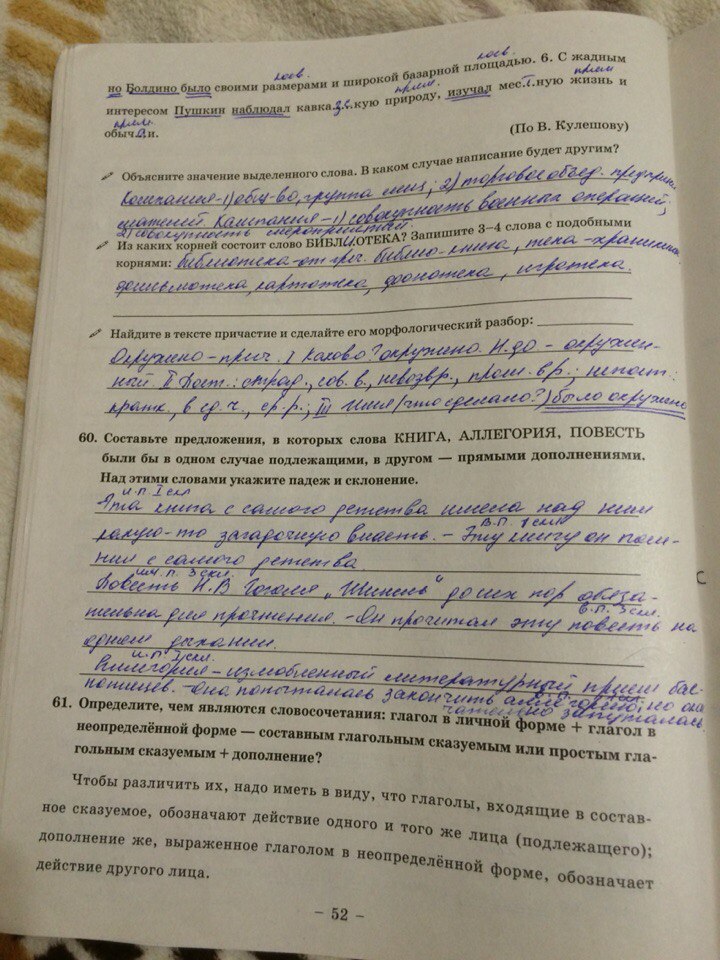 посв. посв.
но Болдино было своими размерами и широкой базарной площадью. 6. С жадным
прилаг. прилаг.
интересом Пушкин наблюдал кавка.зс.кую природу, изучал мес.т.ную жизнь и
обыча.и.
(По В. Кулешову)
Объясните значение выделенного слова. В каком случае написание будет другим?
Компания-1) общ-во, группа лиц; 2) торговое объед. предприни
мателей Кампания-1) совокупность военных операций;
2) совокупность мероприятий.
Из каких корней состоит слово БИБЛИОТЕКА? Запишите 3–4 слова с подобными
корнями: библиотека-от грч. библио-книга, тека-хранилище
фильмотека, картотека, фонотека, игротека.
Найдите в тексте причастие и сделайте его морфологический разбор:
Окружено-прич. I Каково? окружено. Н.ф - окружен-
ный. II Пост.: страд., сов. в, невозвр., прош. вр.; непост.:
кратк., в ед. ч., ср. р.; III Имя (что сделано?) было окружено
60. Составьте предложения, в которых слова КНИГА, АЛЛЕГОРИЯ, ПОВЕСТЬ
были бы в одном случае подлежащими, в другом — прямыми дополнениями.
Над этими словами укажите падеж и склонение.
И.П. I скл
Эта книга с самого детства имела над ним
В.П. 1 скл
какую-то загадочную власть. - Эту книгу он пом-
нил с самого детства.
Им. П. 3 скл.
Повесть Н.В Гоголя „Шинель" до сих пор обяза-
В.П. 3 скл.
тельна для прочтения. - Он прочитал эту повесть на
одном дыхании.
И.П. 1 скл.
Аллегория-излюбленный литературный прием бас-
нописцев. - Она попыталась закончить аллегорию, но она
запуталась
61. Определите, чем являются словосочетания: глагол в личной форме + глагол в
неопределённой форме — составным глагольным сказуемым или простым гла-
гольным сказуемым + дополнение?
Чтобы различить их, надо иметь в виду, что глаголы, входящие в состав-
ное сказуемое, обозначают действие одного и того же лица (подлежащего);
дополнение же, выраженное глаголом в неопределённой форме, обозначает
действие другого лица.
– 52 –